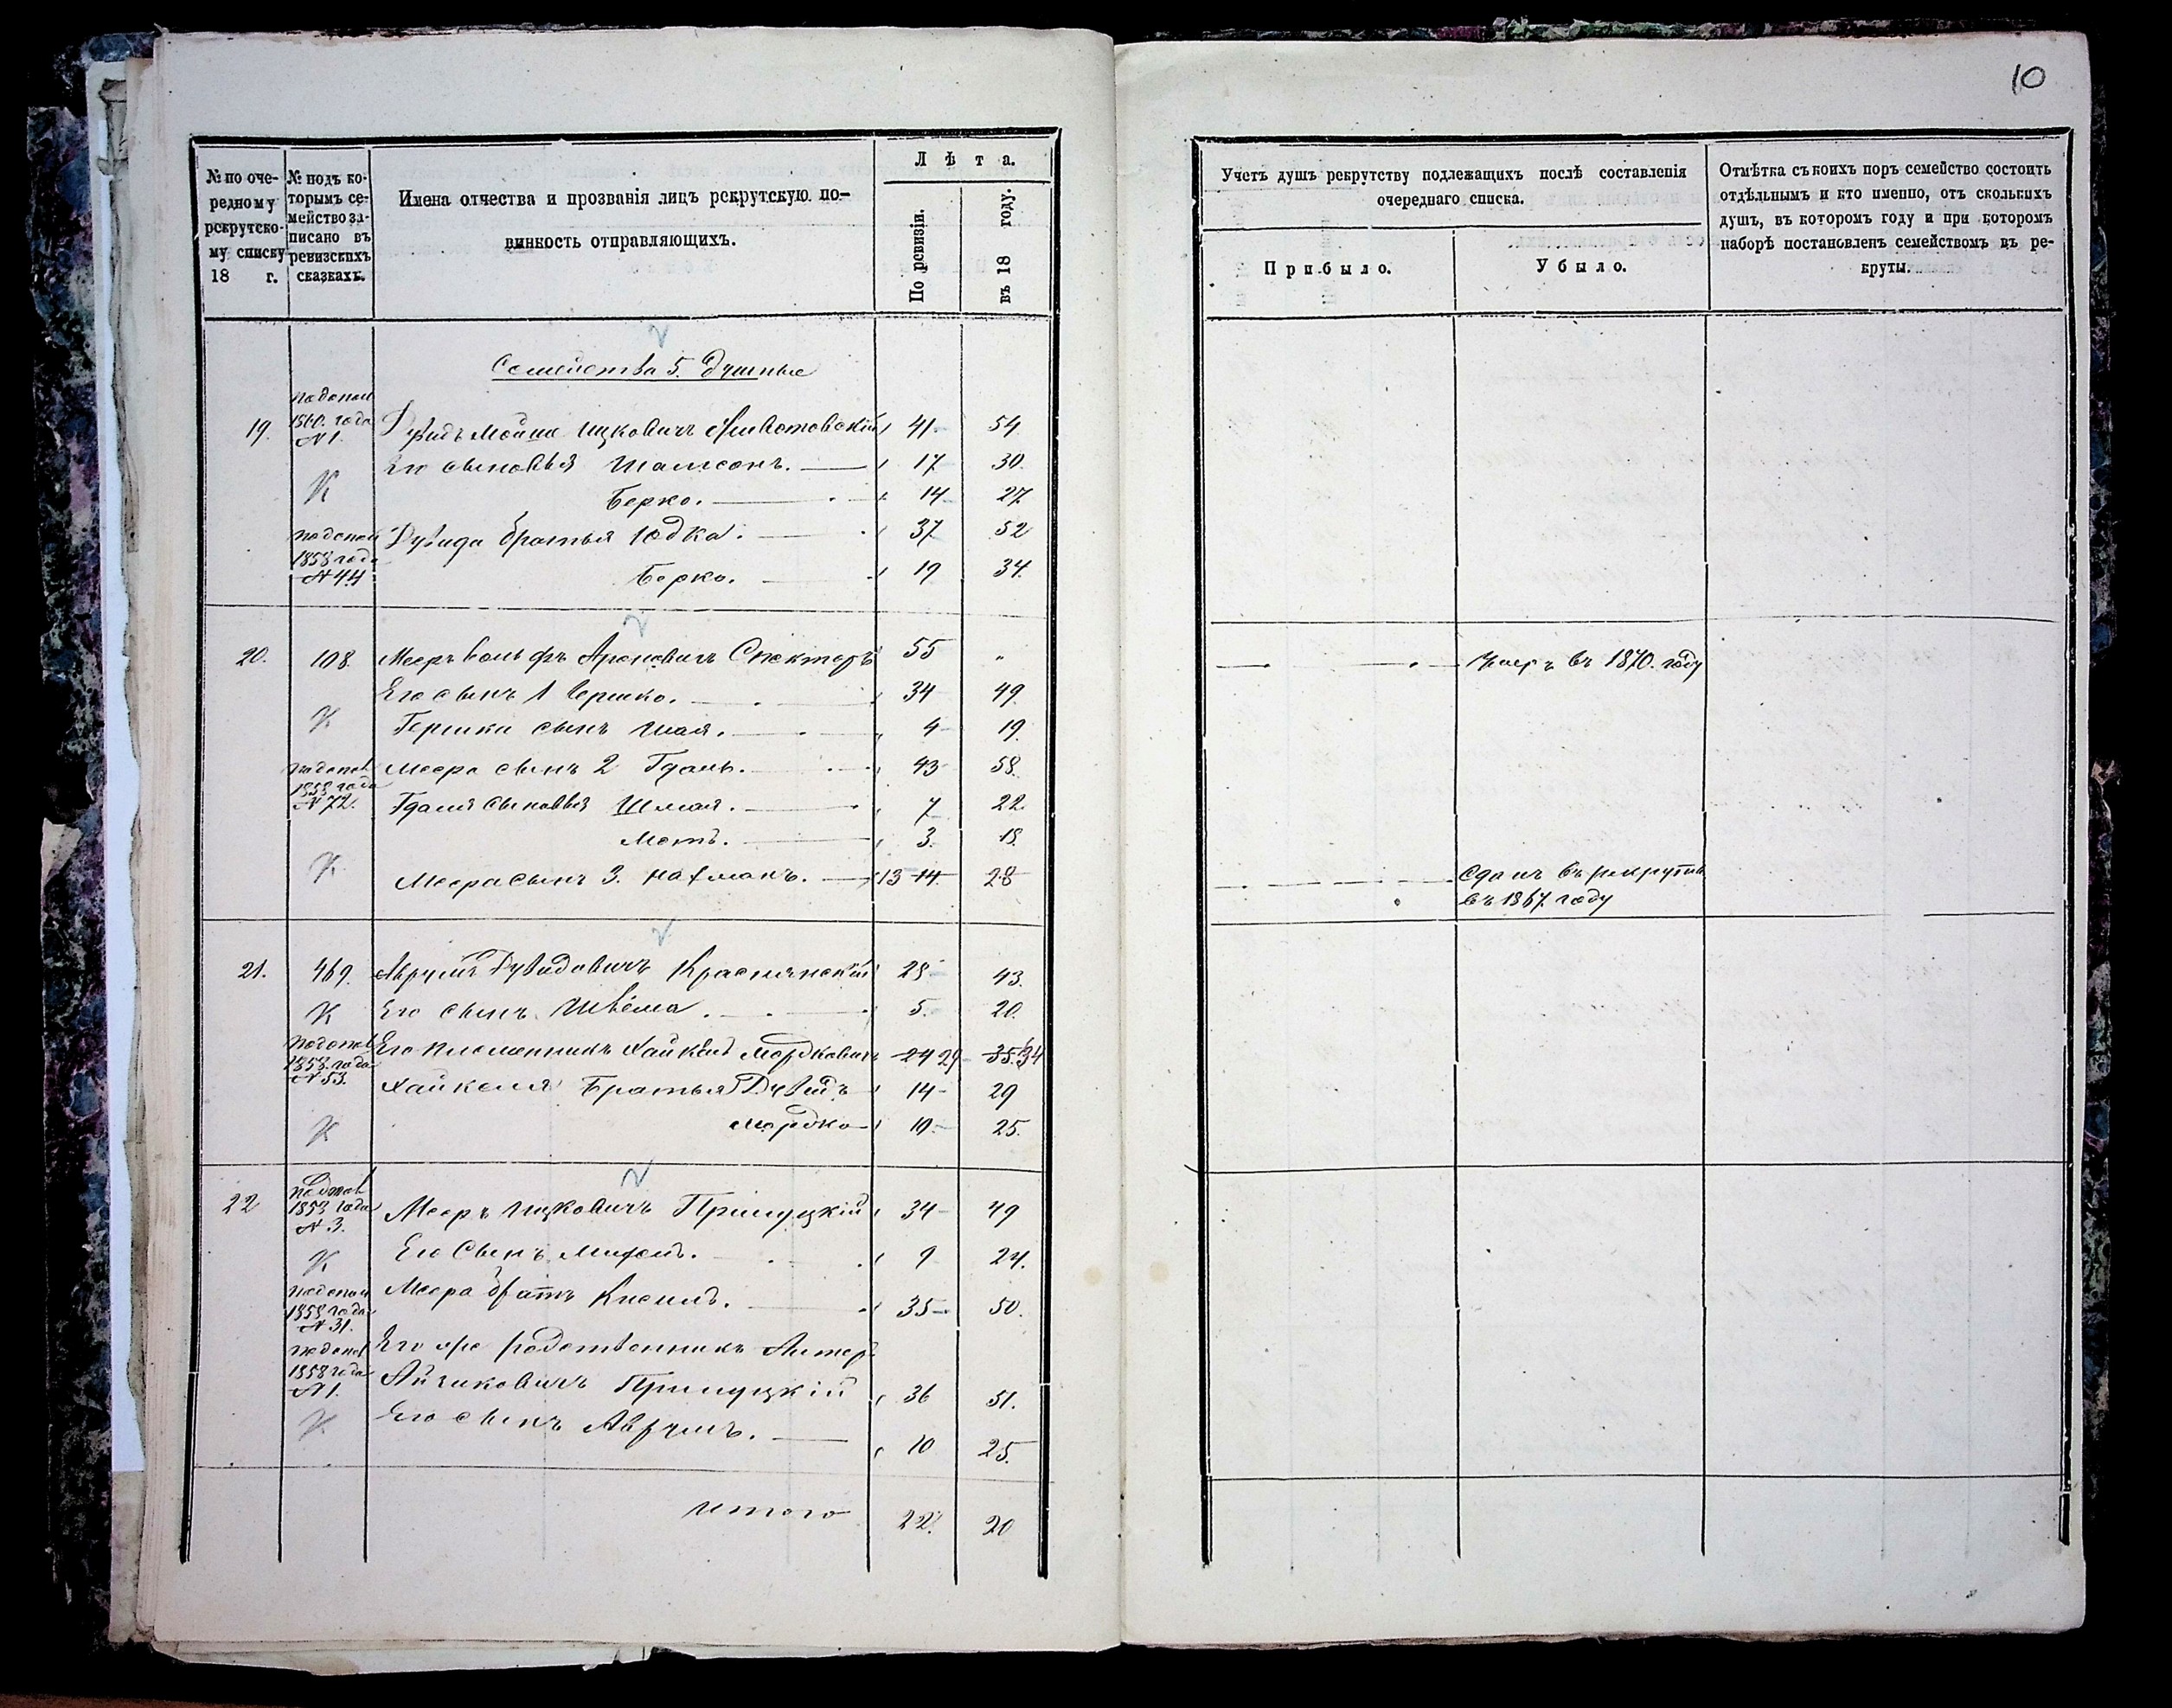 10
№ по оче-
редному
рекрутско-
му списку
18 г.
№ подъ ко-
торымъ се-
мейство за-
писано въ
ревизскихъ
сказкахъ.
Имена отчества и прозванія лицъ рекрутскую по-
винность отправляющихъ.
Лѣта.
По ревизіи.
въ 18 году.
Учетъ душъ рекрутству подлежащихъ послѣ составленія
очереднаго списка.
Прибыло.
Убыло.
Отмѣтка съ коихъ поръ семейство состоитъ
отдѣльнымъ и кто именно, отъ сколькихъ
душъ, въ которомъ году и при которомъ
наборѣ поставленъ семействомъ въ ре-
круты.
Семейства 5. душные
19. 1860. года №1. Дувидъ Мошка Ицковичъ Животовскій 41 54
Его сыновья Шамсонъ. 17 30.
К Берко. 14 27
1858 года №44 Дувида братья Юдка. 37 52
Берко. 19 34.
20. 108. Мееръ Вольфъ Ароновичъ Спекторъ 55 " Умеръ въ 1870. году
Его сынъ 1 Гершко. 34 49.
К Гершки сынъ Шая. 4 19.
1858 года №72. Меера сынъ 2 Гдаль. 43 58.
Гдаля сыновья Шмая. 7 22.
Мотъ. 3. 18.
К Меера сынъ 3. Нахманъ. 13 14 28 Сданъ въ рекруты
въ 1867. году
21. 469. Аврумъ Дувидовичъ Краснянскій 28 43.
К Его сынъ Швема. 5. 20.
1858. года №53. Его племянникъ Хайкель Мордковичъ 24 29 35. 34
Хайкеля братья Дувидъ 14 29
К Мордко 10 25.
22 1858 года №3. Мееръ Ицковичъ Прилуцкій 34 49
К Его сынъ Михель. 9 24.
1858 года №31. Меера братъ Кисиль. 35 50.
1858 года №1. Его же родственникъ Антер
Айзиковичъ Прилуцкій 36 51.
К Его сынъ Аврумъ. 10 25.
Итого 22. 20